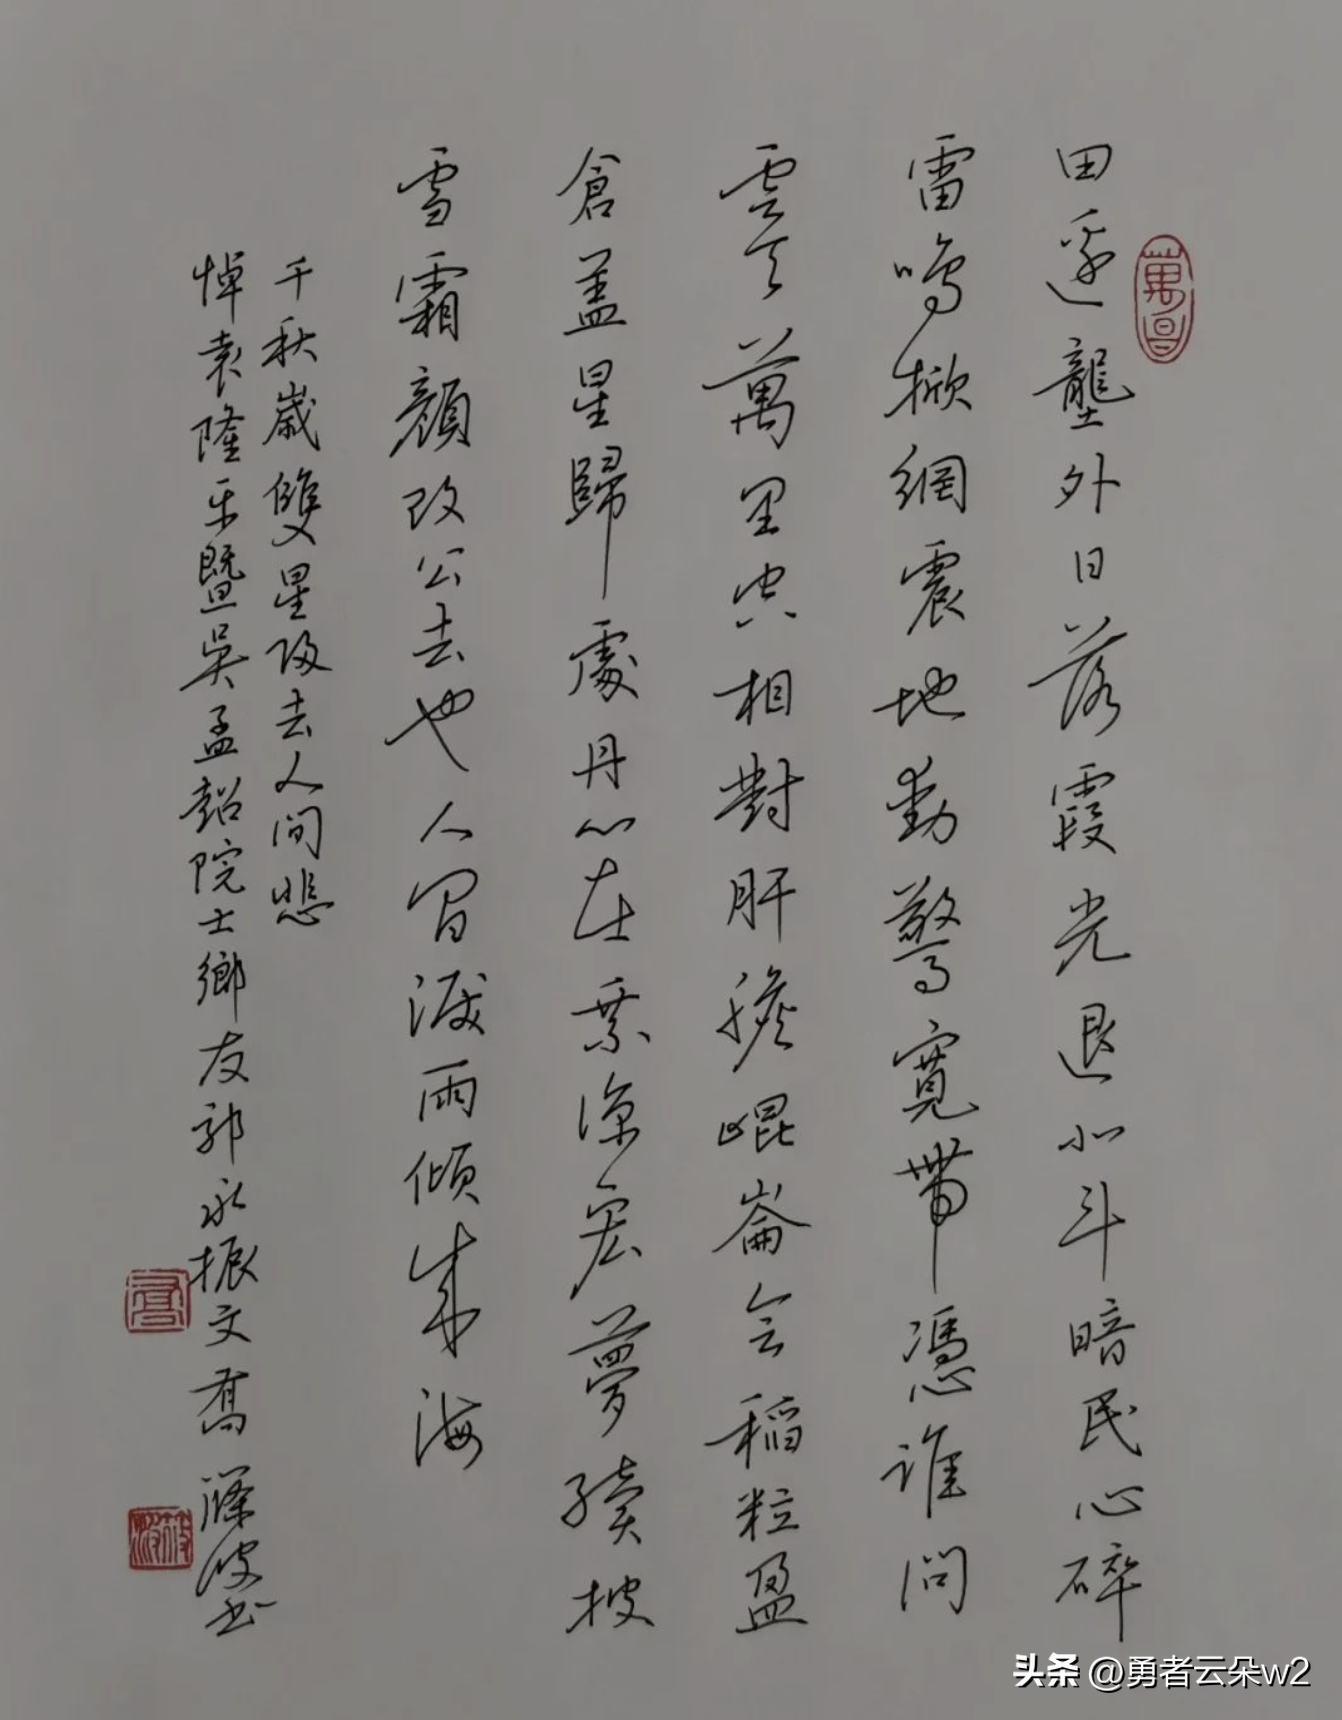 田邊壟外日落霞光退北斗暗民心碎
雷鳴掀網震地動驚寬帶憑誰問
雲天萬里空相對肝膽崐崙会稻粒盈
倉盖星歸處丹心在業深宏夢續披
雪霜顏改公去也人間淚雨傾成海
千秋歲雙星陨去人间悲
悼袁隆平暨吳孟超院士鄉友郭永振文喬滌波书
头条 @勇者云朵w2